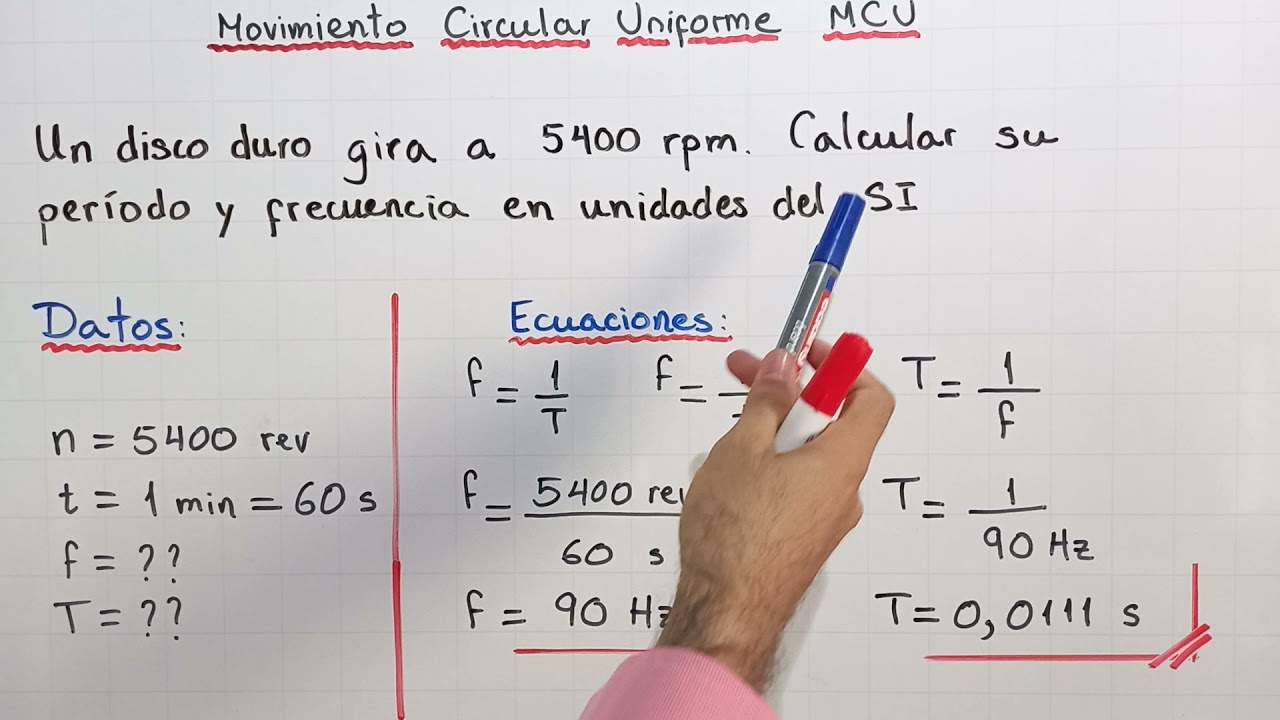 Movimiento Circular Uniforme MCU
Un disco duro gira a 5400 rpm. Calcular su
período y frecuencia en unidades del SI
Datos:
n = 5400 rev
t = 1 min = 60 s
f = ??
T = ??
Ecuaciones:
f = 1/T
f =
T = 1/f
f = 5400 rev / 60 s
T = 1 / 90 Hz
f = 90 Hz
T = 0,0111 s